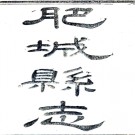 肥城縣志